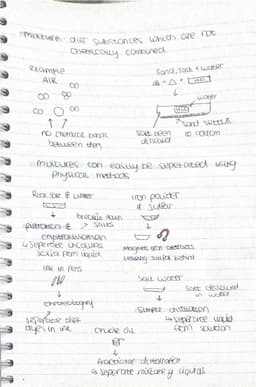 mixture: diff substances which are not
chemically combined
example
AIR
no chemical bonds
between them
Sand, salt + water
water
salt been
dissolved
sand settles
to bottom
mixtures can easily be seperated using
physical methods
Rock salt & water
filtration &
crystallisation
↳ seperate dissolved
solid from liquid
iron powder
& sulfur
magnet iron attracts
leaving sulfur behind
ink in pens
chromatography
seperate diff
dyes in ink
salt water
salt dissolved
in water
simple distillation
↳ seperate liquid
from solution
crude oil
fractional distillation
↳ seperate mixture of liquids